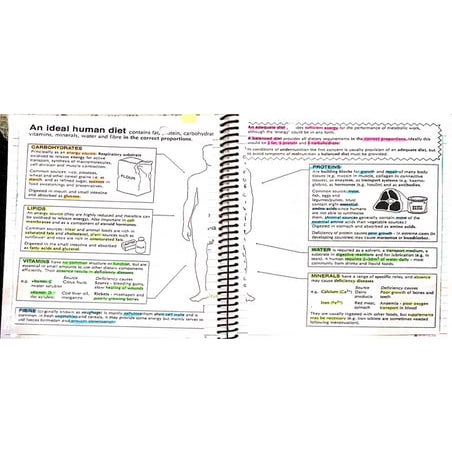 An ideal human diet contains fat, protein, carbohydrate
vitamins, minerals, water and fibre in the correct proportions.
CARBOHYDRATES
Principally as an energy source. Respiratory substrate
oxidised to release energy for active
transport, synthesis of macromolecules,
cell division and muscle contraction.
Common sources: rice, potatoes,
wheat and other cereal grains i.e. as
starch, and as refined sugar, sucrose in
food sweetenings and preservatives.
Digested in mouth and small intestine
and absorbed as glucose.
FLOUR
LIPIDS
An energy source (they are highly reduced and therefore can
be oxidised to release energy). Also important in cell
membranes and as a component of steroid hormones.
Common sources: meat and animal foods are rich in
saturated fats and cholesterol, plant sources such as
sunflower and soya are rich in unsaturated fats
Digested in the small intestine and absorbed
as fatty acids and glycerol.
VITAMINS have no common structure or function, but are
essential in small amounts to use other dietary components
efficiently. Their absence results in deficiency diseases
Source Deficiency causes
Citrus fruits Scurvy - bleeding gums,
slow healing of wounds
e.g. vitamin C
water soluble
vitamin D Cod liver oil, Rickets - misshapen and
poorly growing bones
FIBRE (originally known as roughage) is mainly cellulose from plant cell walls and is
common in fresh vegetables and cereals. It may provide some energy but mainly serves to
aid faeces formation and prevent constipation.
An adequate diet provides sufficient energy for the performance of metabolic work,
although the 'energy' could be in any form.
A balanced diet provides all dietary requirements in the correct proportions. Ideally this
would be
In conditions of undernutrition the first concern is usually provision of an adequate diet, but
to avoid symptoms of malnutrition a balanced diet must be provided.
PROTEINS
Are building blocks for growth and repair of many body
tissues (e.g. myosin in muscle, collagen in connective
tissues), as enzymes, as transport systems (e.g. haemo-
globin), as hormones (e.g. insulin) and as antibodies.
Common source: meat,
fish, eggs and
legumes/pulses. Must
contain essential
amino acids since humans
are not able to synthesise
them. Animal sources generally contain more of the
essential amino acids than vegetable sources.
Digested in stomach and absorbed as amino acids.
Deficiency of protein causes poor growth - in extreme cases (in
developing countries) may cause marasmus or kwashiorkor.
BEANS
WATER is required as a solvent, a transport medium, a
substrate in digestive reactions and for lubrication (e.g. in
tears). A human requires 2-3 dm³ of water daily - most
commonly from drinks and liquid foods.
MINERALS have a range of specific roles, and absence
may cause deficiency diseases
Source Deficiency causes
e.g. Calcium (Ca²⁺) Dairy products Poor growth of bones and
teeth
Iron (Fe²⁺) Red meat, Anaemia - poor oxygen
transport in blood
They are usually ingested with other foods, but supplements
may be necessary (e.g. iron tablets are sometimes needed
following menstruation).